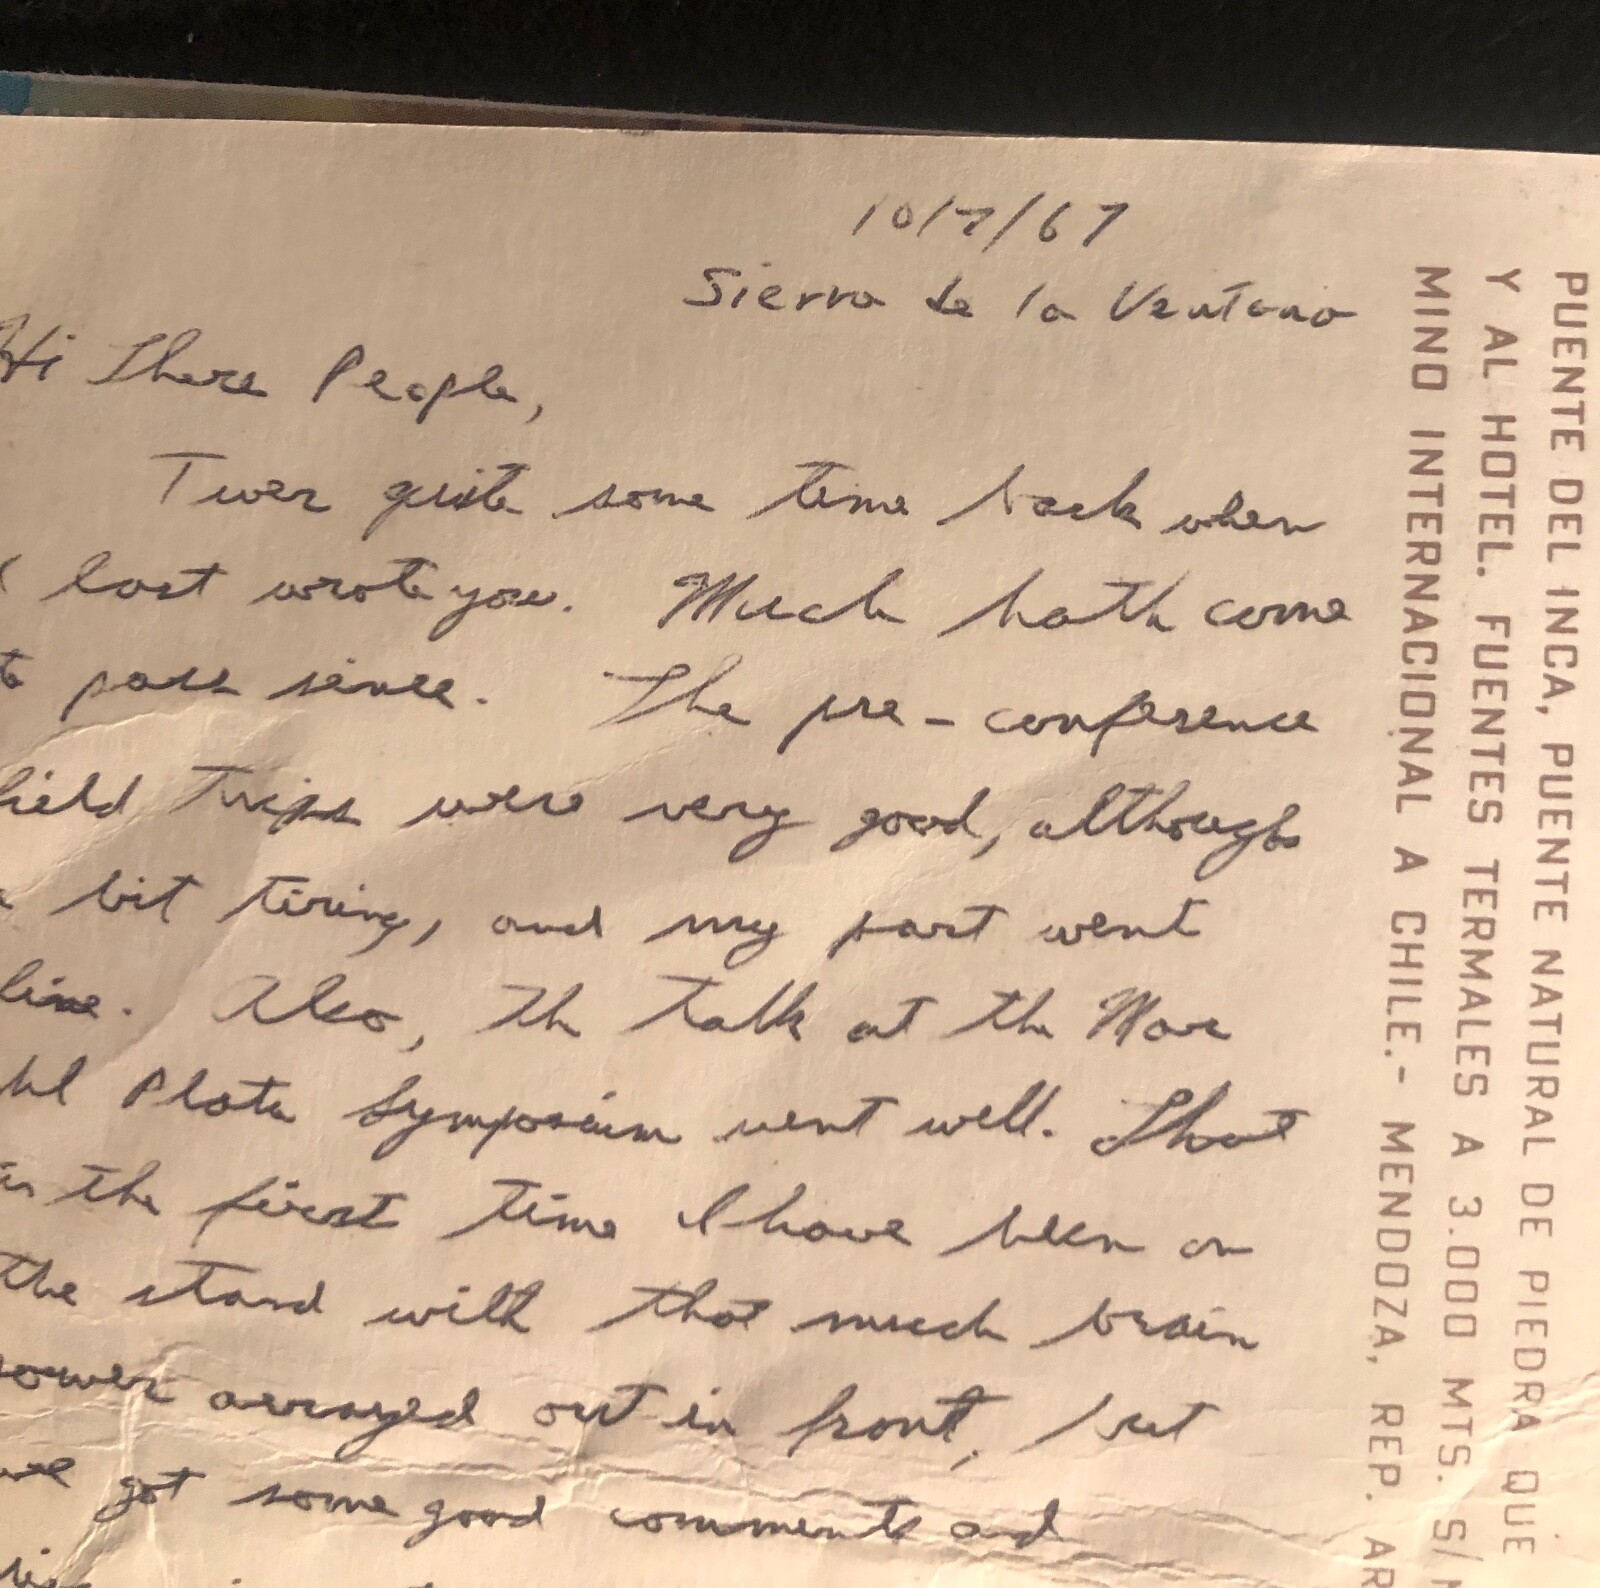 10/7/67
Sierra de la Ventana
Hi There People,
Twer quite some time back when
I last wrote you. Much hath come
to pass since. The pre-conference
field trips were very good, although
a bit tiring, and my part went
fine. Also, th talk at th Mar
del Plata Symposium went well. That
is the first time I have been on
the stand with that much brain
power arrayed out in front, but
we got some good comments and
PUENTE DEL INCA, PUENTE NATURAL DE PIEDRA QUE
Y AL HOTEL. FUENTES TERMALES A 3.000 MTS. S/
MINO INTERNACIONAL A CHILE.- MENDOZA, REP. AR